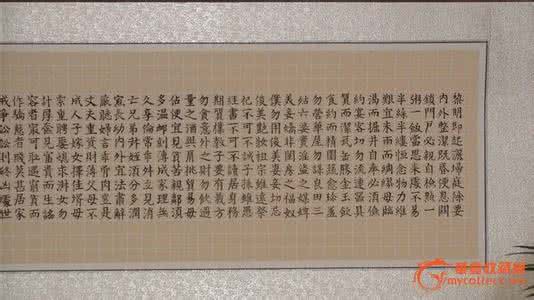 黎明即起灑掃庭除要
內外整潔既昏便息關
鎖門戶必親自檢點一
粥一飯當思來處不易
半絲半縷恒念物力維
艱宜未雨而綢繆毋臨
渴而掘井自奉必須儉
約宴客切勿流連器具
質而潔瓦缶勝金玉飲
食約而精園蔬愈珍羞
勿營華屋勿謀良田三
姑六婆實淫盜之媒婢
美妾嬌非閨房之福奴
僕勿用俊美妻妾切忌
俊美艷妝祖宗雖遠祭
祀不可不誠子孫雖愚
經書不可不讀居身務
期質樸教子要有義方
勿貪意外之財勿飲過
量之酒與肩挑貿易毋
佔便宜見貧苦親鄰須
多溫卹刻薄成家理無
久享倫常乖舛立見消
亡兄弟叔姪須分多潤
寡長幼內外宜法肅辭
嚴聽婦言乖骨肉豈是
丈夫重貲財薄父母不
成人子嫁女擇佳婿毋
索重聘娶媳求淑女勿
計厚奩見富貴而生諂
容者最可恥遇貧窮而
作驕態者賤莫甚居家
戒爭訟訟則終凶處世